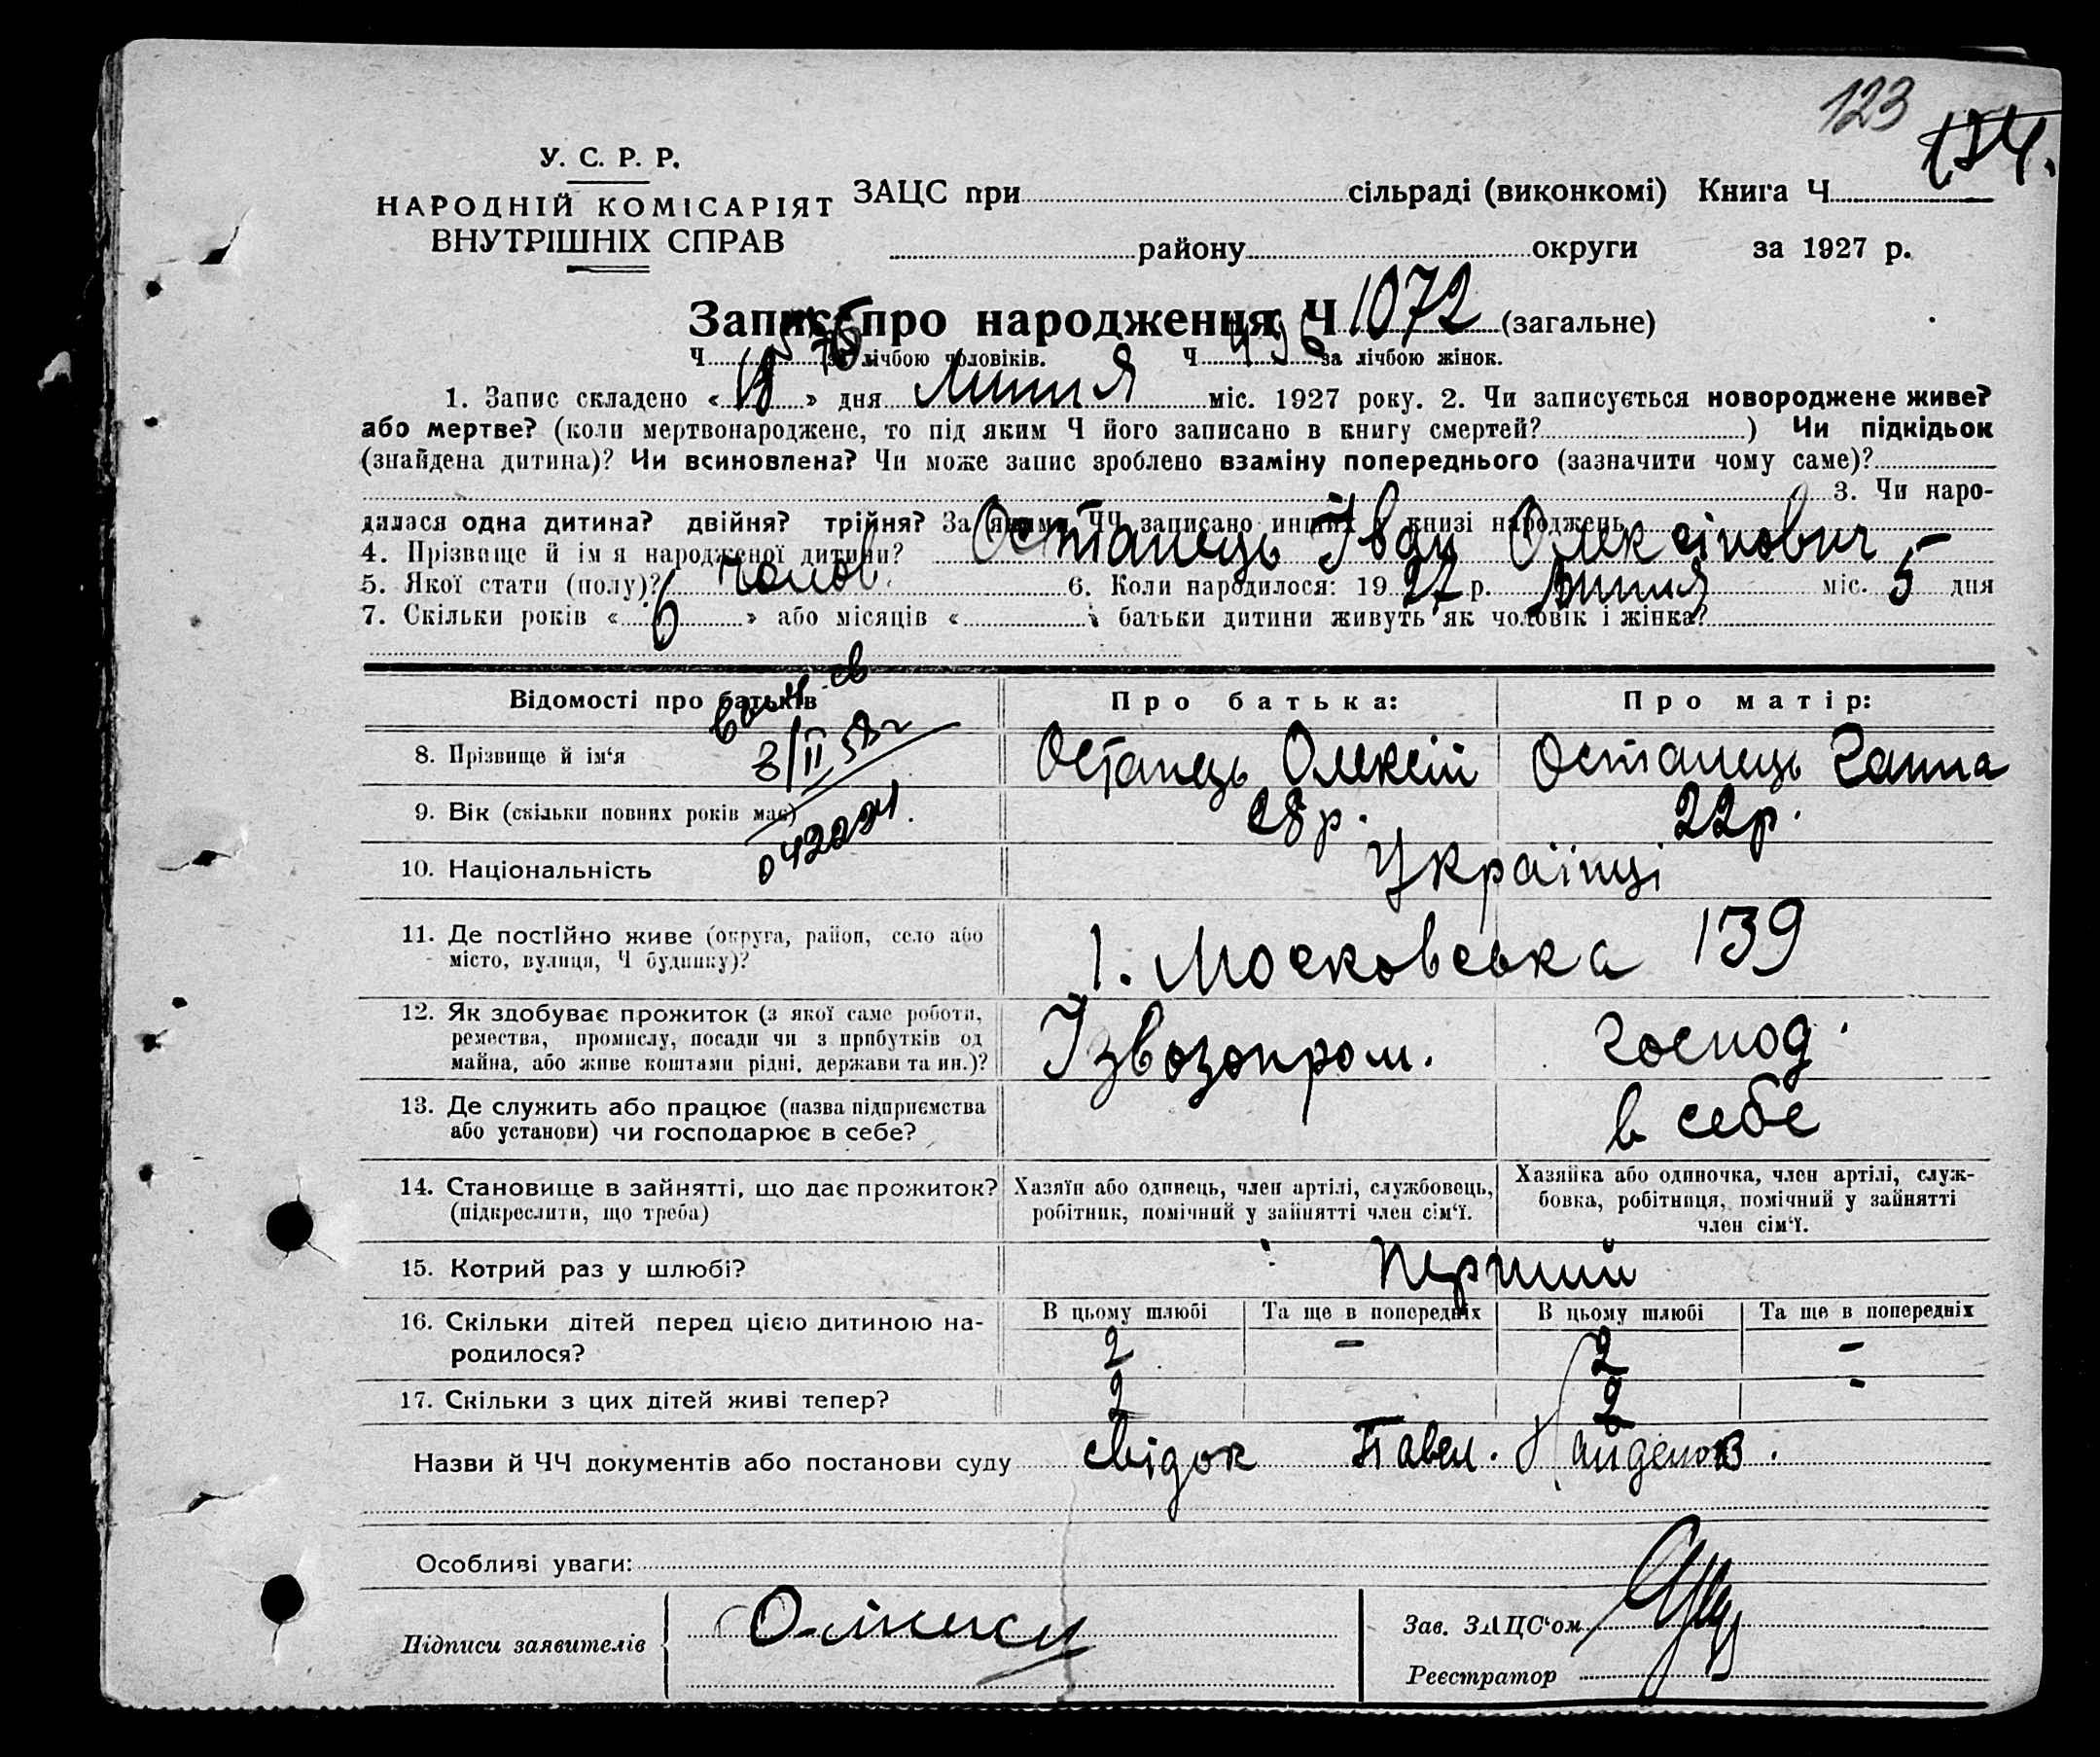 123
134.
У. С. Р. Р.
НАРОДНІЙ КОМІСАРІЯТ
ВНУТРІШНІХ СПРАВ
ЗАЦС при сільраді (виконкомі) Книга Ч
району округи за 1927 р.
Запис про народження Ч 1072 (загальне)
Ч 576 за лічбою чоловіків. Ч 496 за лічбою жінок.
1. Запис складено « » дня Липня міс. 1927 року. 2. Чи записується новороджене живе?
або мертве? (коли мертвонароджене, то під яким Ч його записано в книгу смертей? ) Чи підкідьок
(знайдена дитина)? Чи всиновлена? Чи може запис зроблено взаміну попереднього (зазначити чому саме)?
3. Чи наро-
дилася одна дитина? двійня? трійня? За якими ЧЧ записано инших у книзі народжень
4. Прізвище й ім я народженої дитини? Остапець Іван Олексійович
5. Якої стати (полу)? чолов. 6. Коли народилося: 1927 р. Липня міс. 5 дня
7. Скільки років « 6 » або місяців « » батьки дитини живуть як чоловік і жінка?
Відомості про батьків
Про батька:
Про матір:
8. Прізвище й ім‘я
Остапець Олексій
Остапець Ганна
9. Вік (скільки повних років має)
28 р.
22 р.
10. Національність
Українці
11. Де постійно живе (округа, район, село або
місто, вулиця, Ч будинку)?
1. Московська 139
12. Як здобуває прожиток (з якої саме роботи,
ремества, промислу, посади чи з прибутків од
майна, або живе коштами рідні, держави та ин.)?
Ізвозопром.
господ.
13. Де служить або працює (назва підприємства
або установи) чи господарює в себе?
в себе
14. Становище в зайнятті, що дає прожиток?
(підкреслити, що треба)
Хазяїн або одинець, член артілі, службовець,
робітник, помічний у зайнятті член сім‘ї.
Хазяйка або одиночка, член артілі, служ-
бовка, робітниця, помічний у зайнятті
член сім‘ї.
15. Котрий раз у шлюбі?
перший
16. Скільки дітей перед цією дитиною на-
родилося?
В цьому шлюбі Та ще в попередніх В цьому шлюбі Та ще в попередніх
2 - 2 -
17. Скільки з цих дітей живі тепер?
2 2 -
Назви й ЧЧ документів або постанови суду свідок Павел. Найденов.
Особливі уваги:
Підписи заявителів
Зав. ЗАЦС‘ом
Реєстратор